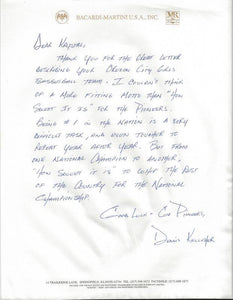 BACARDI-MARTINI U.S.A., INC.
Dear Krystal,
Thank you for the great letter
describing your Oregon City Girls
Basketball team - I couldn't think
of a more fitting motto than "How
Sweet It Is" for the Pioneers.
Being #1 in the nation is a very
difficult task, and even tougher to
repeat year after year. But from
one National Champion to another,
"How sweet it is" to whip the rest
of the country for the National
Championship.
Good Luck - Go Pioneers,